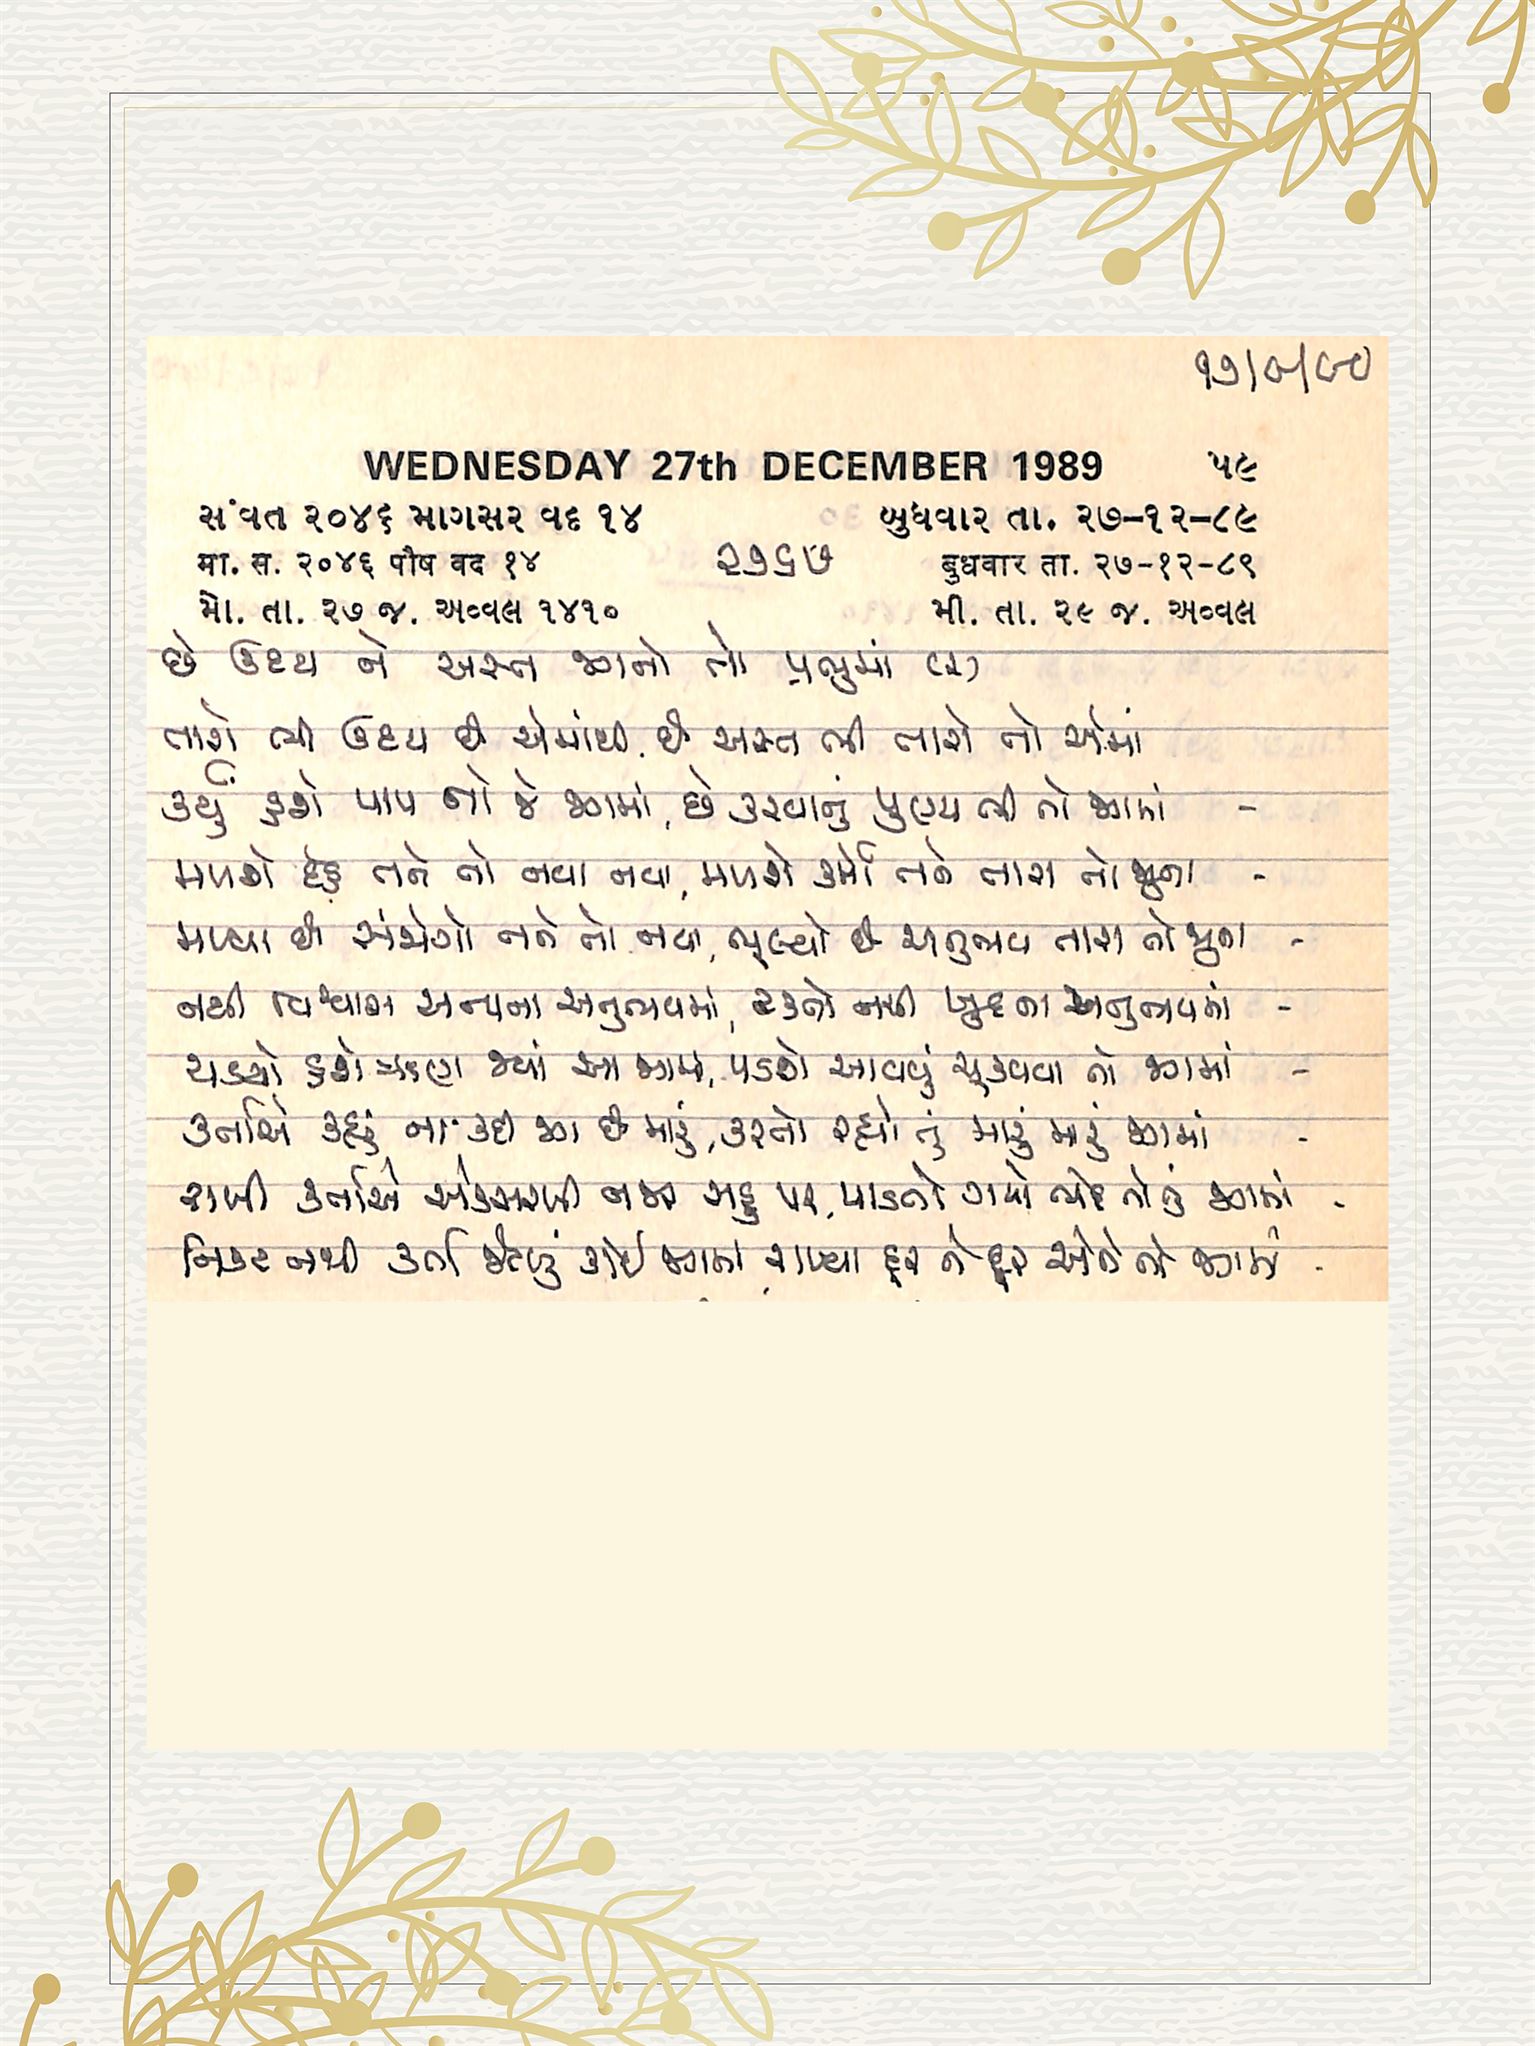 ૧૭/૭/૯૦
WEDNESDAY 27th DECEMBER 1989 ૫૯
સંવત ૨૦૪૬ માગસર વદ ૧૪ બુધવાર તા. ૨૭-૧૨-૮૯
મા. સ. ૨૦૪૬ પૌષ વદ ૧૪ ૨૭૬૭ बुधवार ता. २७-१२-८९
મો. તા. ૨૭ જ. અવ્વલ ૧૪૧૦ મી. તા. ૨૯ જ. અવ્વલ
છે ઉદય ને અસ્ત જગનો તો પ્રભુમાં (૨)
તારો ભી ઉદય છે એમાંથી, છે અસ્ત ભી તારો તો એમાં
કર્યું હશે પાપ તો જે જગમાં, છે કરવાનું પુણ્ય ભી તો જગમાં -
મળશે દેહ તને તો નવા નવા, મળશે કર્મો તને તારા તો જુના -
મળ્યા છે સંજોગો તને તો નવા, ભૂલ્યો છે અનુભવ તારા તો જુના -
નથી વિશ્વાસ અન્યના અનુભવમાં, ટકતો નથી ખુદના અનુભવમાં -
ચડશે હશે ઋણ જ્યાં આ જગમાં, પડશે આવવું ચૂકવવા તો જગમાં -
કર્તાએ કહ્યું ના કદી જગ છે મારું, કરતો રહ્યો તું મારું મારું જગમાં -
રાખી કર્તાએ એકસરખી નજર સહુ પર, પાડતો ગયો ભેદ તો તું જગમાં -
નિકટ નથી કર્તા જેટલું કોઈ જગમાં રાખ્યા દૂર ને દૂર એને તો જગમાં -